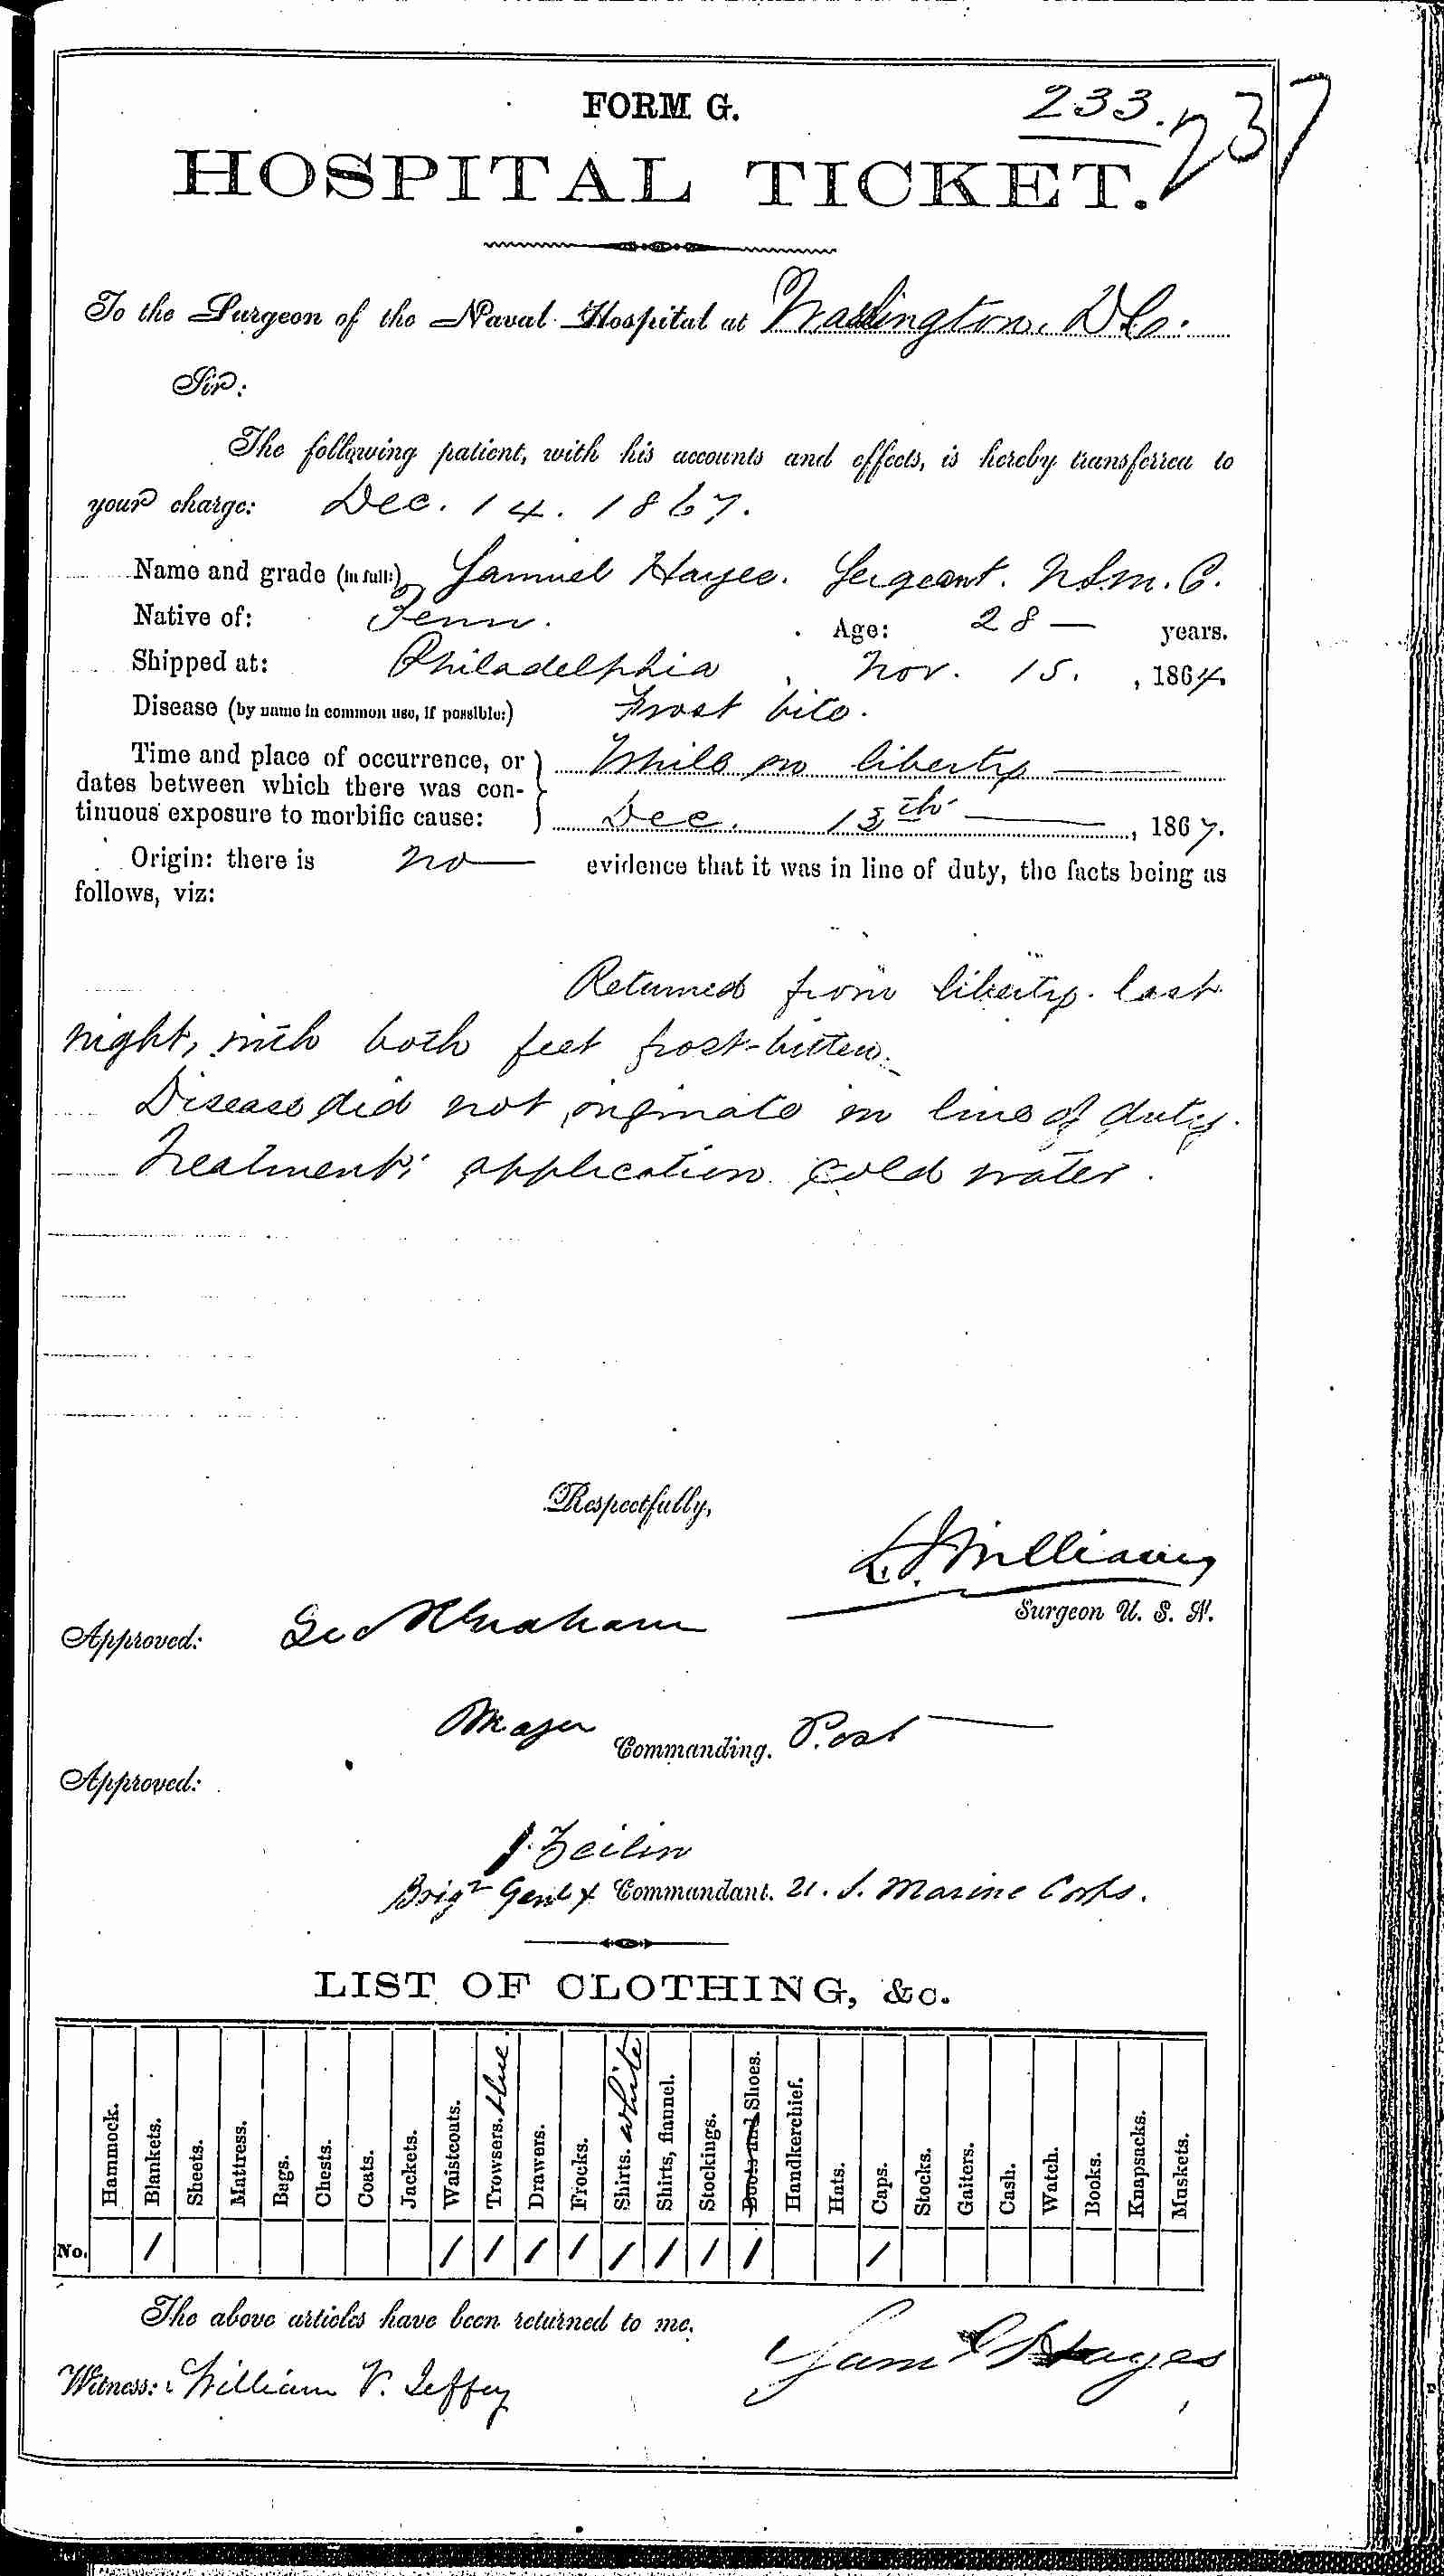 FORM G.
233.
237
HOSPITAL TICKET.
To the Surgeon of the Naval Hospital at Washington. D.C.
Sir:
The following patient, with his accounts and effects, is hereby transferred to
your charge: Dec. 14. 1867.
Name and grade (in full:) Samuel Hayes. Sergeant. U.S.M.C.
Native of: Penn. Age: 28 — years.
Shipped at: Philadelphia , Nov. 15. , 1864.
Disease (by name in common use, if possible:) Frost bite.
Time and place of occurrence, or } While on liberty —
dates between which there was con-
tinuous exposure to morbific cause: Dec. 13th — , 1867.
Origin: there is no — evidence that it was in line of duty, the facts being as
follows, viz:
Returned from liberty last
night, with both feet frost-bitten.
Disease did not originate in line of duty.
Treatment: application cold water.
Respectfully,
Williams
Surgeon U. S. N.
Approved: Geo R Graham
Major Commanding. Post —
Approved:
J. Zeilin
Brigr Genl & Commandant. U. S. Marine Corps.
LIST OF CLOTHING, &c.
Hammock. Blankets. Sheets. Mattress. Bags. Chests. Coats. Jackets. Waistcoats. Trowsers. blue. Drawers. Frocks. Shirts. white Shirts, flannel. Stockings. Boots and Shoes. Handkerchief. Hats. Caps. Stocks. Gaiters. Cash. Watch. Books. Knapsacks. Muskets.
No. 1 1 1 1 1 1 1 1 1 1
The above articles have been returned to me.
Saml Hayes
Witness: William V. Jeffey